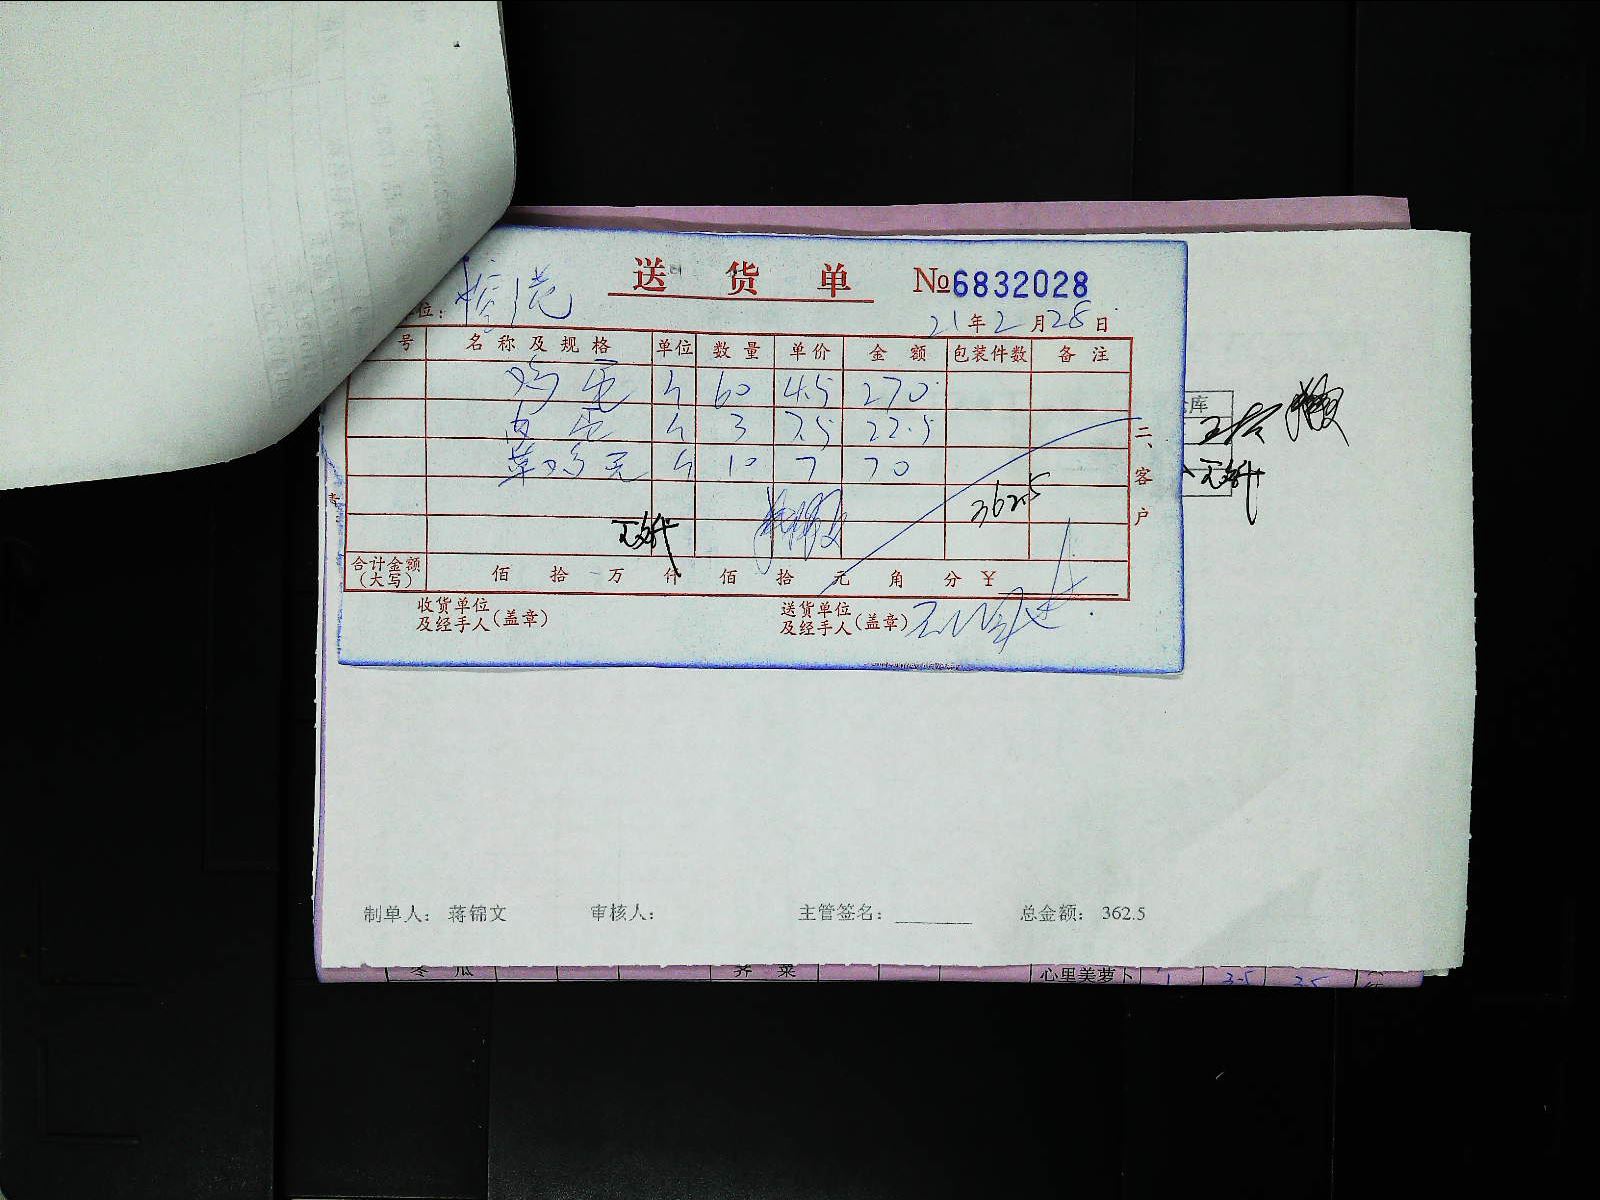 送 货 单 №6832028
位：
21年2月28日
号 名称及规格 单位 数量 单价 金额 包装件数 备注
鸡蛋 斤 60 4.5 270
斤 3 7.5 22.5
草鸡蛋 斤 10 7 70
362.5
二、客户
合计金额（大写） 佰 拾 万 仟 佰 拾 元 角 分 ￥
收货单位及经手人（盖章）
送货单位及经手人（盖章）
库
制单人： 蒋锦文 审核人： 主管签名： 总金额： 362.5
冬瓜 荠菜 心里美萝卜 1 3.5 3.5